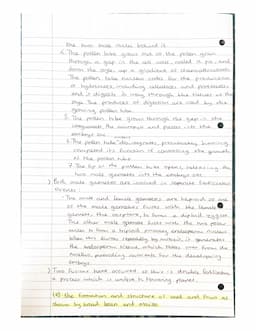 the two male nuclei behind it
4. The pollen tube grows out of the pollen grain
through a gap in the cell wall, called a pit, and
down the style, up a gradient of chemoattractants.
The pollen tube nucleus codes for the production
of hydrolases, including cellulases and proteases
and it digests its way through the tissues of the
style. The products of digestion are used by the
growing pollen tube.
5. The pollen tube grows through the gap in the
integuments, the micropyle and passes into the
embryo sac.
6. The pollen tube degenerates, presumably having
completed its function of controlling the growth
of the pollen tube
7. The tip of the pollen tube opens, releasing the
two male gametes into the embryo sac.
Both male gametes are involved in separate fertilisation
events:
The male and female gametes are haploid so one
of the male gametes fuses with the female
gamete, the oosphere, to form a diploid zygote.
The other male gamete fuses with the two polar
nuclei to form a triploid primary endosperm nucleus
When this divides repeatedly by mitosis, it generates
the endosperm tissue, which takes over from the
nucellus, providing nutrients for the developing
embryo.
Two fusions have occurred so this is double fertilisation
a process which is unique to flowering plants.
(e) the formation and structure of seed and fruit as
shown by broad bean and maize